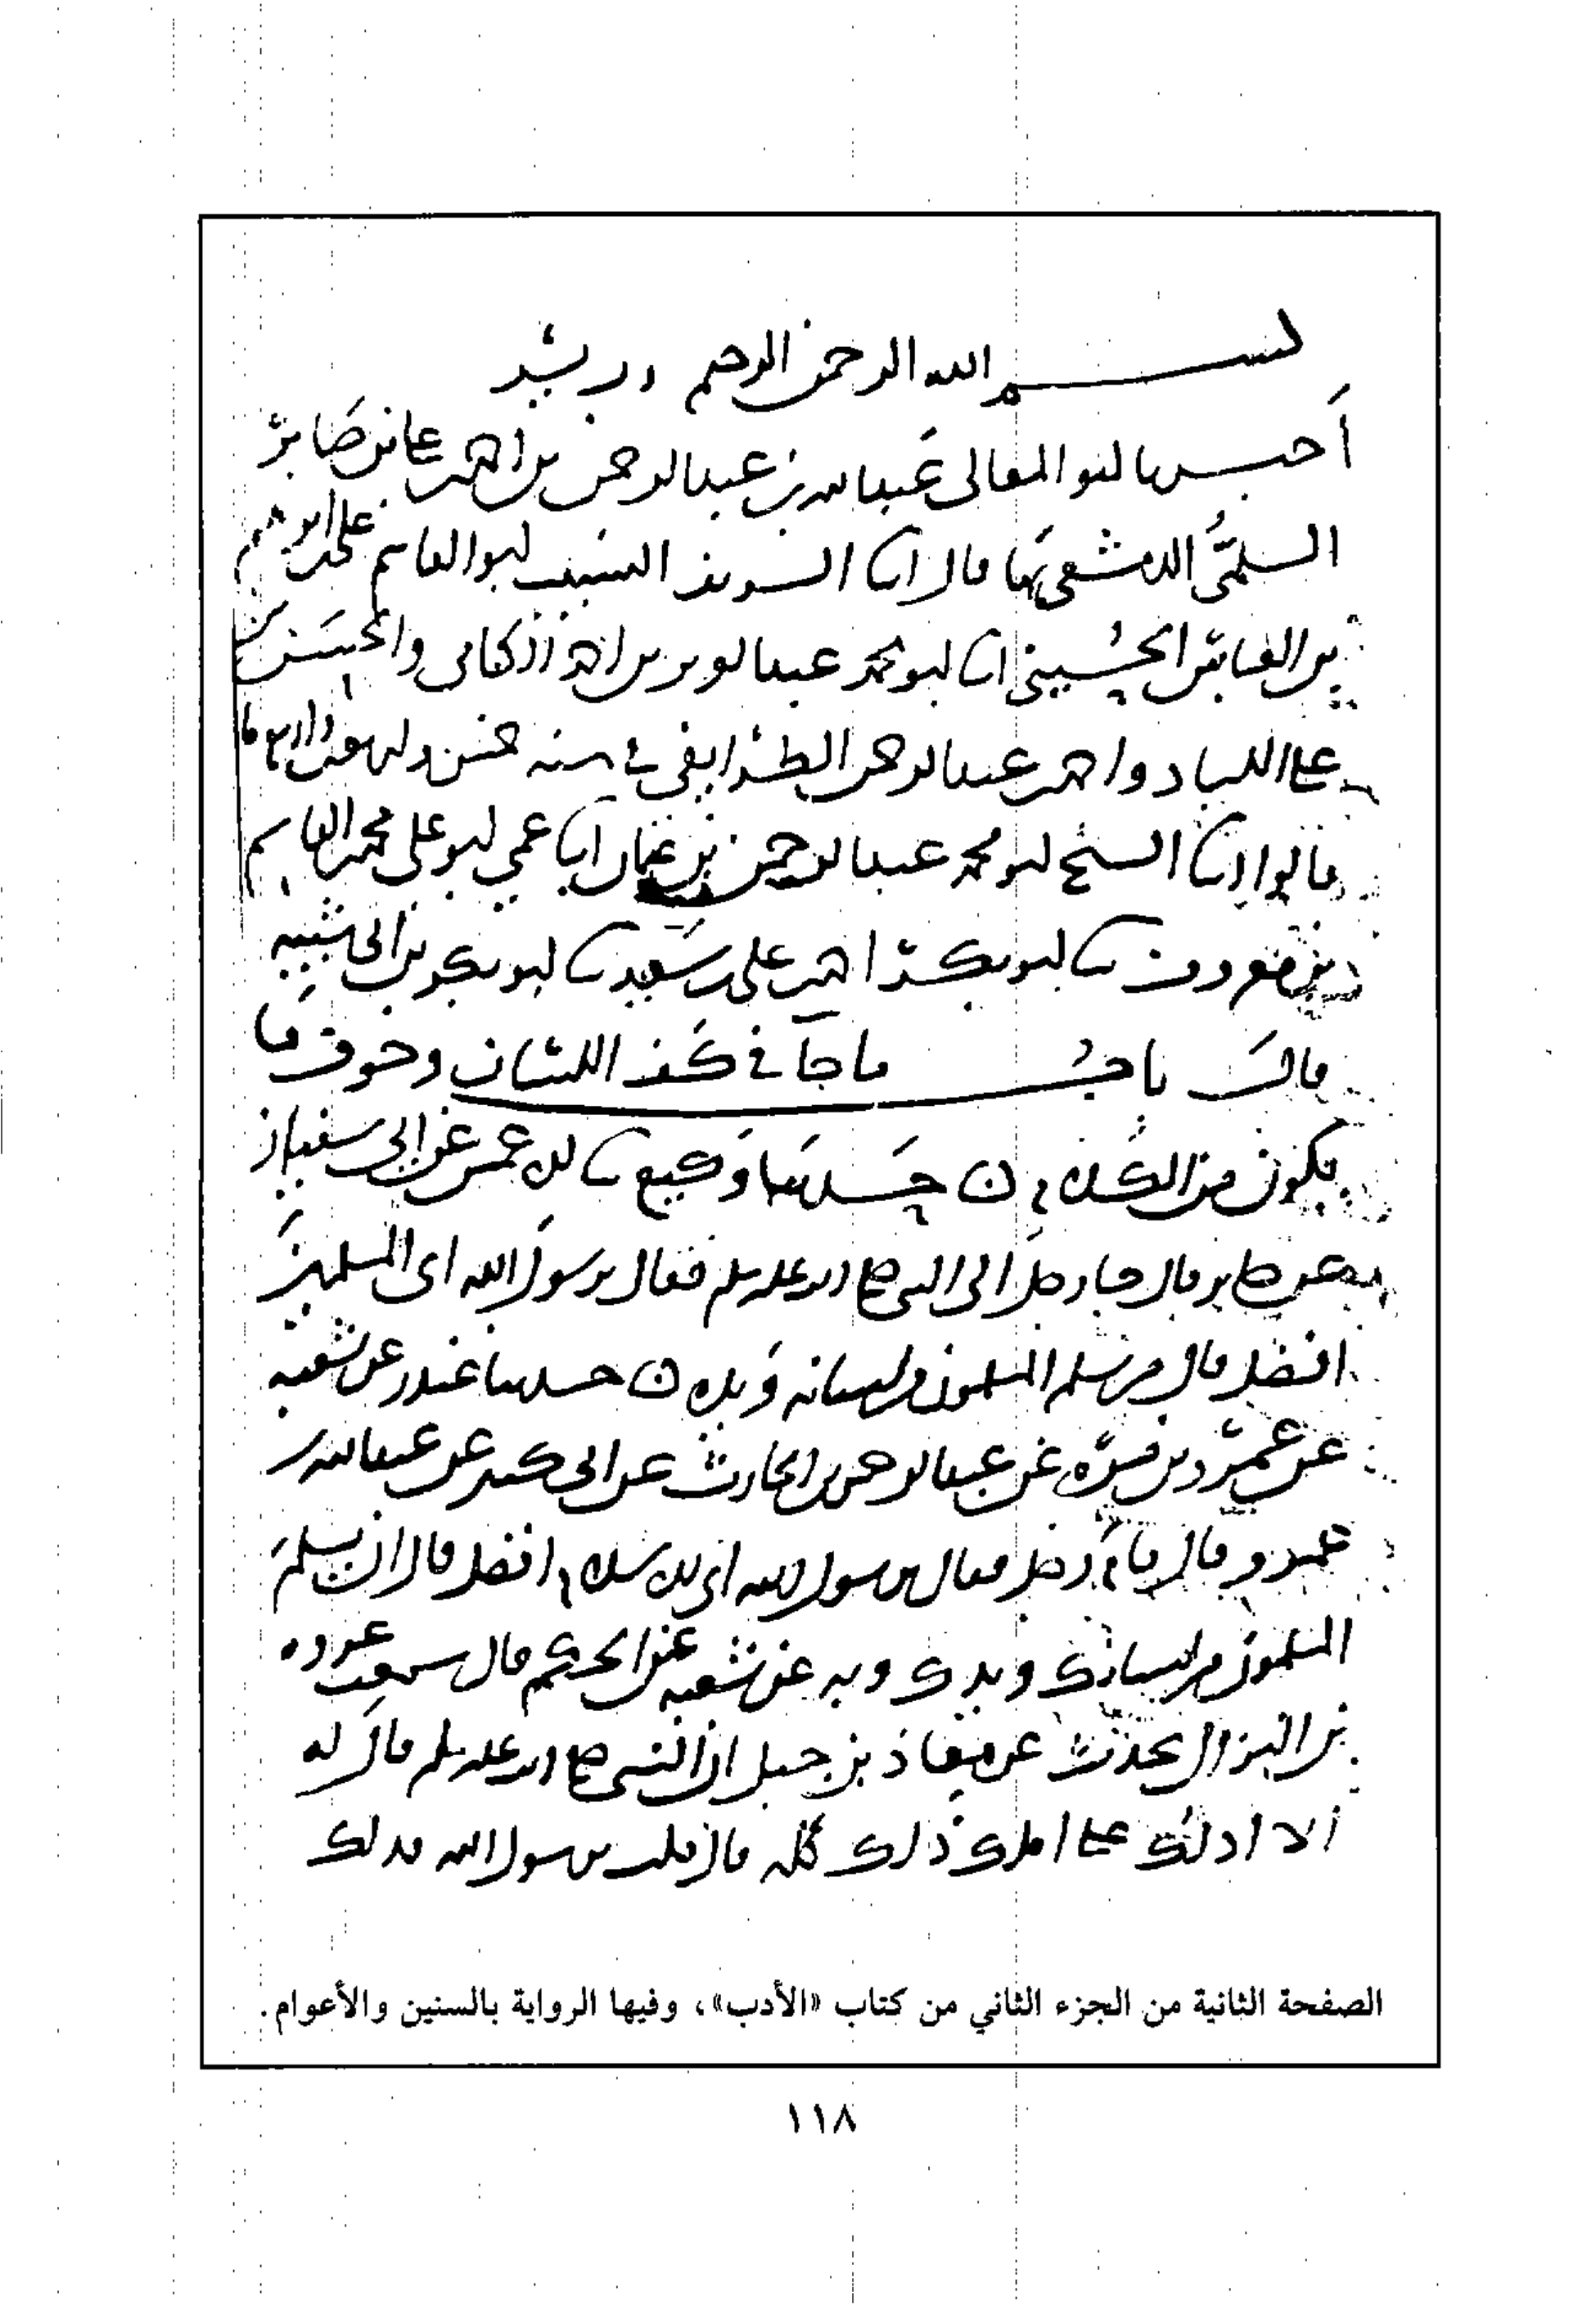 بسم الله الرحمن الرحيم رب يسر
أخبرنا ابو المعالى عبد الله بن عبد الرحمن بن احمد بن على بن صابر
السلمى الدمشقى بها قال انا الشريف النسيب ابو القاسم على بن ابرهيم
بن العباس الحسينى انا ابو محمد عبد العزيز بن احمد الكتانى والحسن بن
على اللباد واحمد بن عبد الرحمن الطرايفى فى سنه خمس
قالوا انا الشيخ ابو محمد عبد الرحمن بن عثمان انا عمي ابو على محمد بن القاسم
بن معروف نا ابو بكر احمد بن على بن سعيد نا ابو بكر بن ابى شيبه
قال باب ما جا فى كف اللسان وخوف ما
يكون من الكلام حدثنا وكيع نا الاعمش عن ابى سفيان
عن جابر قال جا رجل الى النبى صلى الله عليه وسلم فقال يرسول الله اى المسلمين
افضل قال من سلم المسلمون من لسانه ويده حدثنا غندر عن شعبه
عن عمرو بن مره عن عبد الله بن الحارث عن ابى كثير عن عبد الله بن
عمرو قال قام رجل فقال يرسول الله اى الاسلام افضل قال ان يسلم
المسلمون من لسانك ويدك وبه عن شعبه عن الحكم قال سمعت عروه
بن النزال يحدث عن معاذ بن جبل ان النبى صلى الله عليه وسلم قال له
الا ادلك على املك ذلك كله قال قلت يرسول الله قولك
الصفحة الثانية من الجزء الثاني من كتاب «الأدب»، وفيها الرواية بالسنين والأعوام.
١١٨